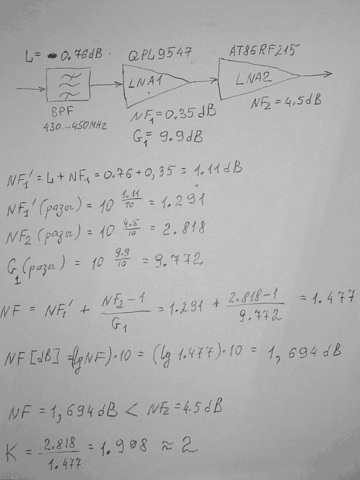 L= 0.76dB QPL9547 AT86RF215
LNA1 LNA2
BPF
430...450MHz
NF₁=0.35dB
G₁= 9.9dB
NF₂=4.5dB
NF₁'=L+NF₁=0.76+0,35=1.11dB
NF₁'(разы)=10^(1.11/10)=1.291
NF₂(разы)=10^(4.5/10)=2.818
G₁(разы)=10^(9.9/10)=9.772
NF=NF₁'+(NF₂-1)/G₁=1.291+(2.818-1)/9.772=1.477
NF[dB]=(lgNF)·10=(lg 1.477)·10=1,694dB
NF=1,694dB<NF₂=4.5dB
K=2.818/1.477=1.908≈2